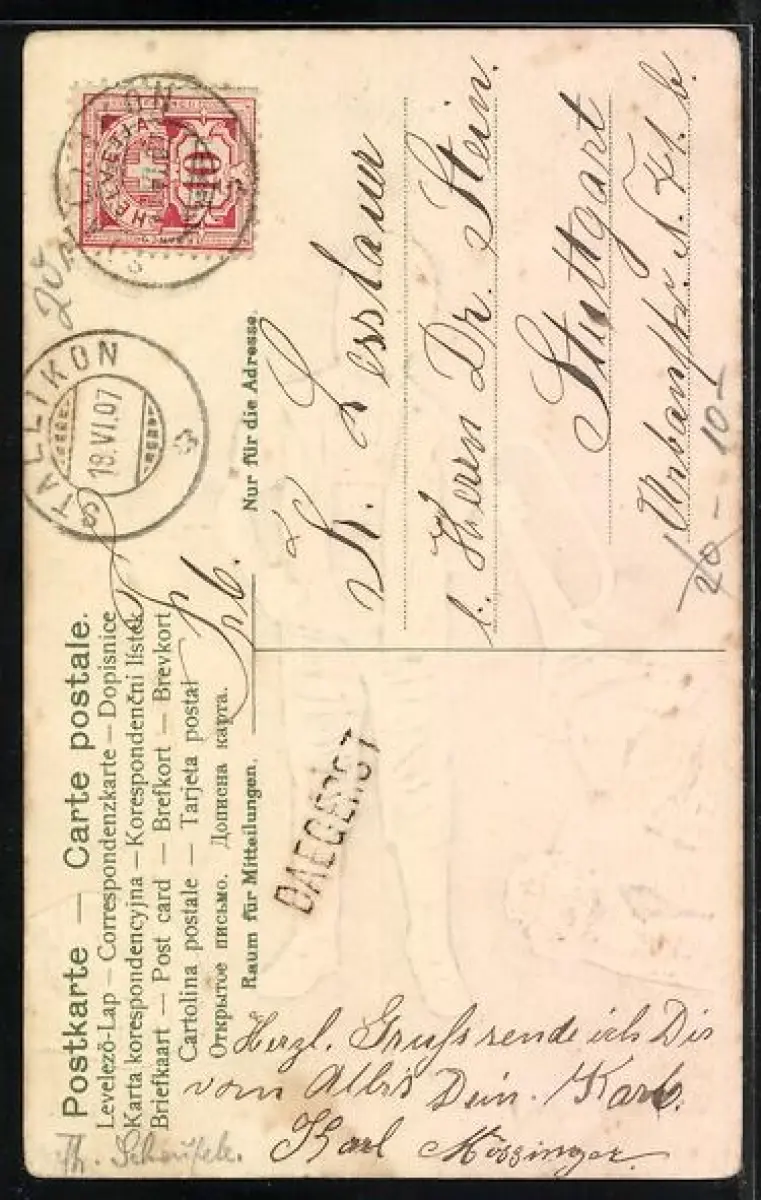 Postkarte — Carte postale.
Levelező-Lap — Correspondenzkarte — Dopisnice
Karta korespondencyjna — Korespondenční lístek
Briefkaart — Post card — Brefkort — Brevkort
Cartolina postale — Tarjeta postal
Открытое письмо. Дописна карта.
Raum für Mitteilungen.
Nur für die Adresse.
HELVETIA
10
STALLIKON
18.VI.07
Frl.
K. Lesslauer
b. Herrn Dr. Stein.
Stuttgart
Urbanstr. N. 41. b.
20 - 10 -
DAEGERST
Herzl. Gruss sende ich Dir
vom Albis Dein. Karl.
Karl Mössinger.